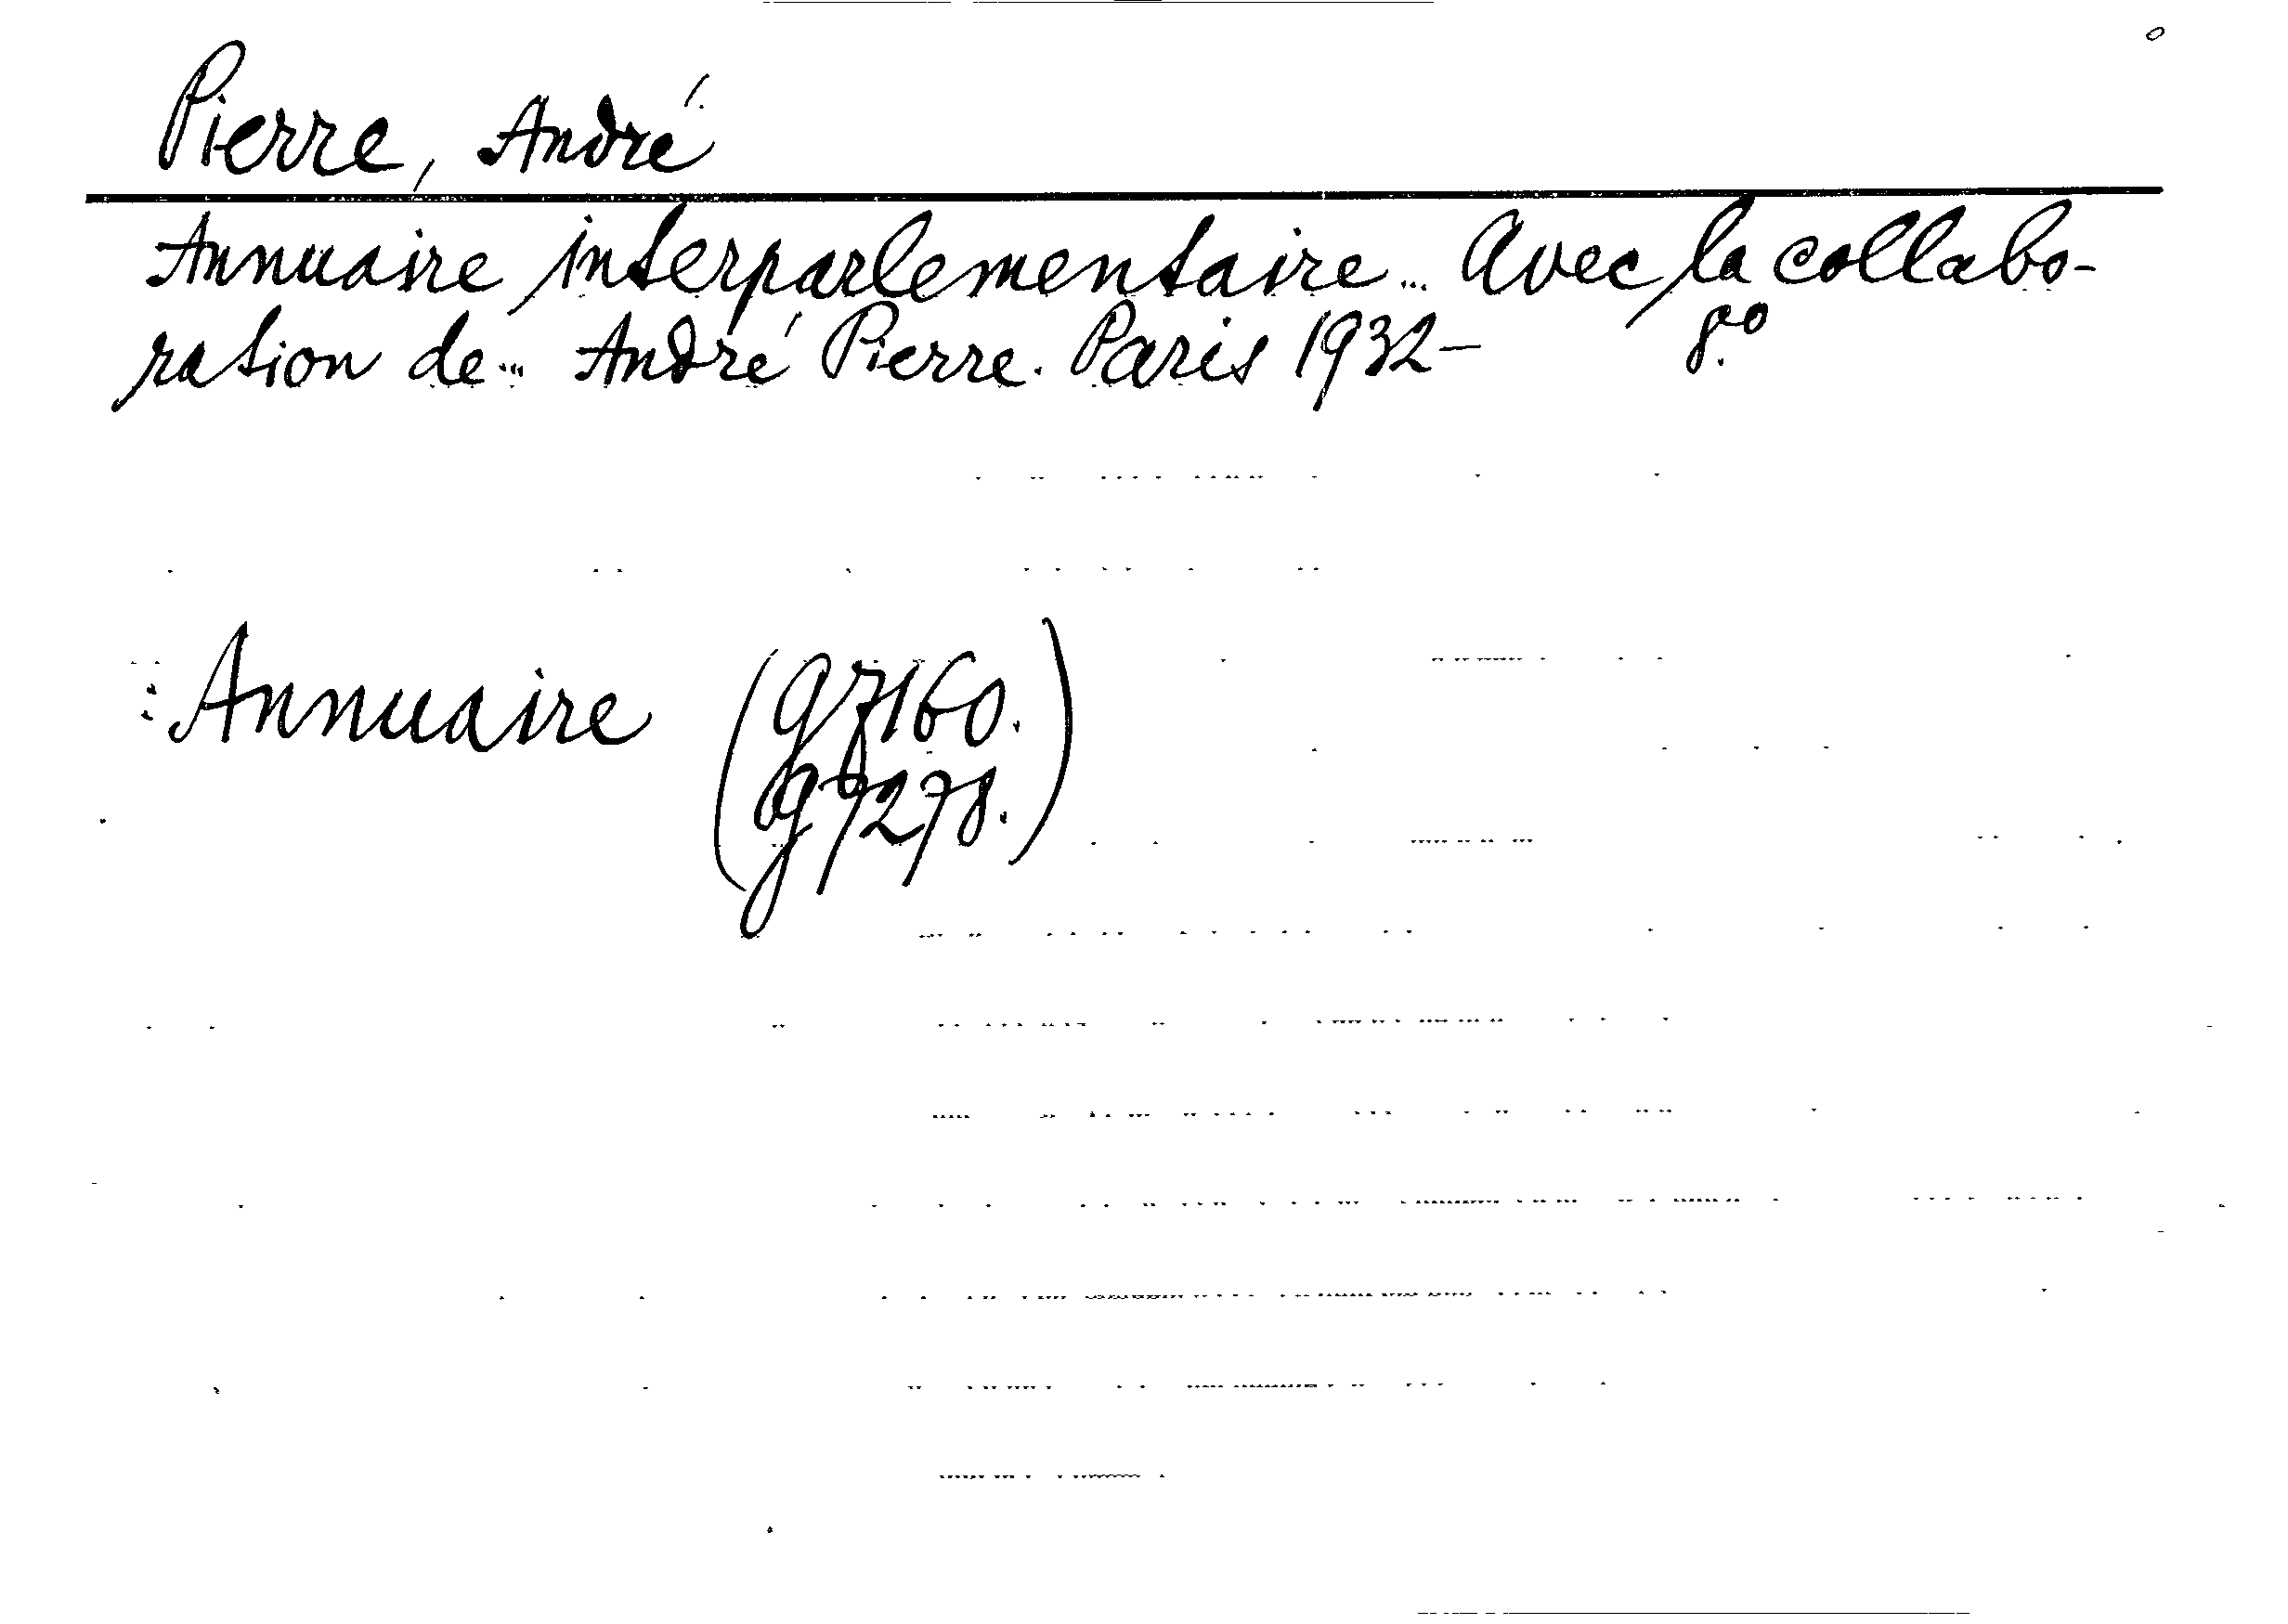 Pierre, André
Annuaire interparlementaire... Avec la collabo-
ration de... André Pierre. Paris 1932- 8.º
: Annuaire (g7160.
g7278.)